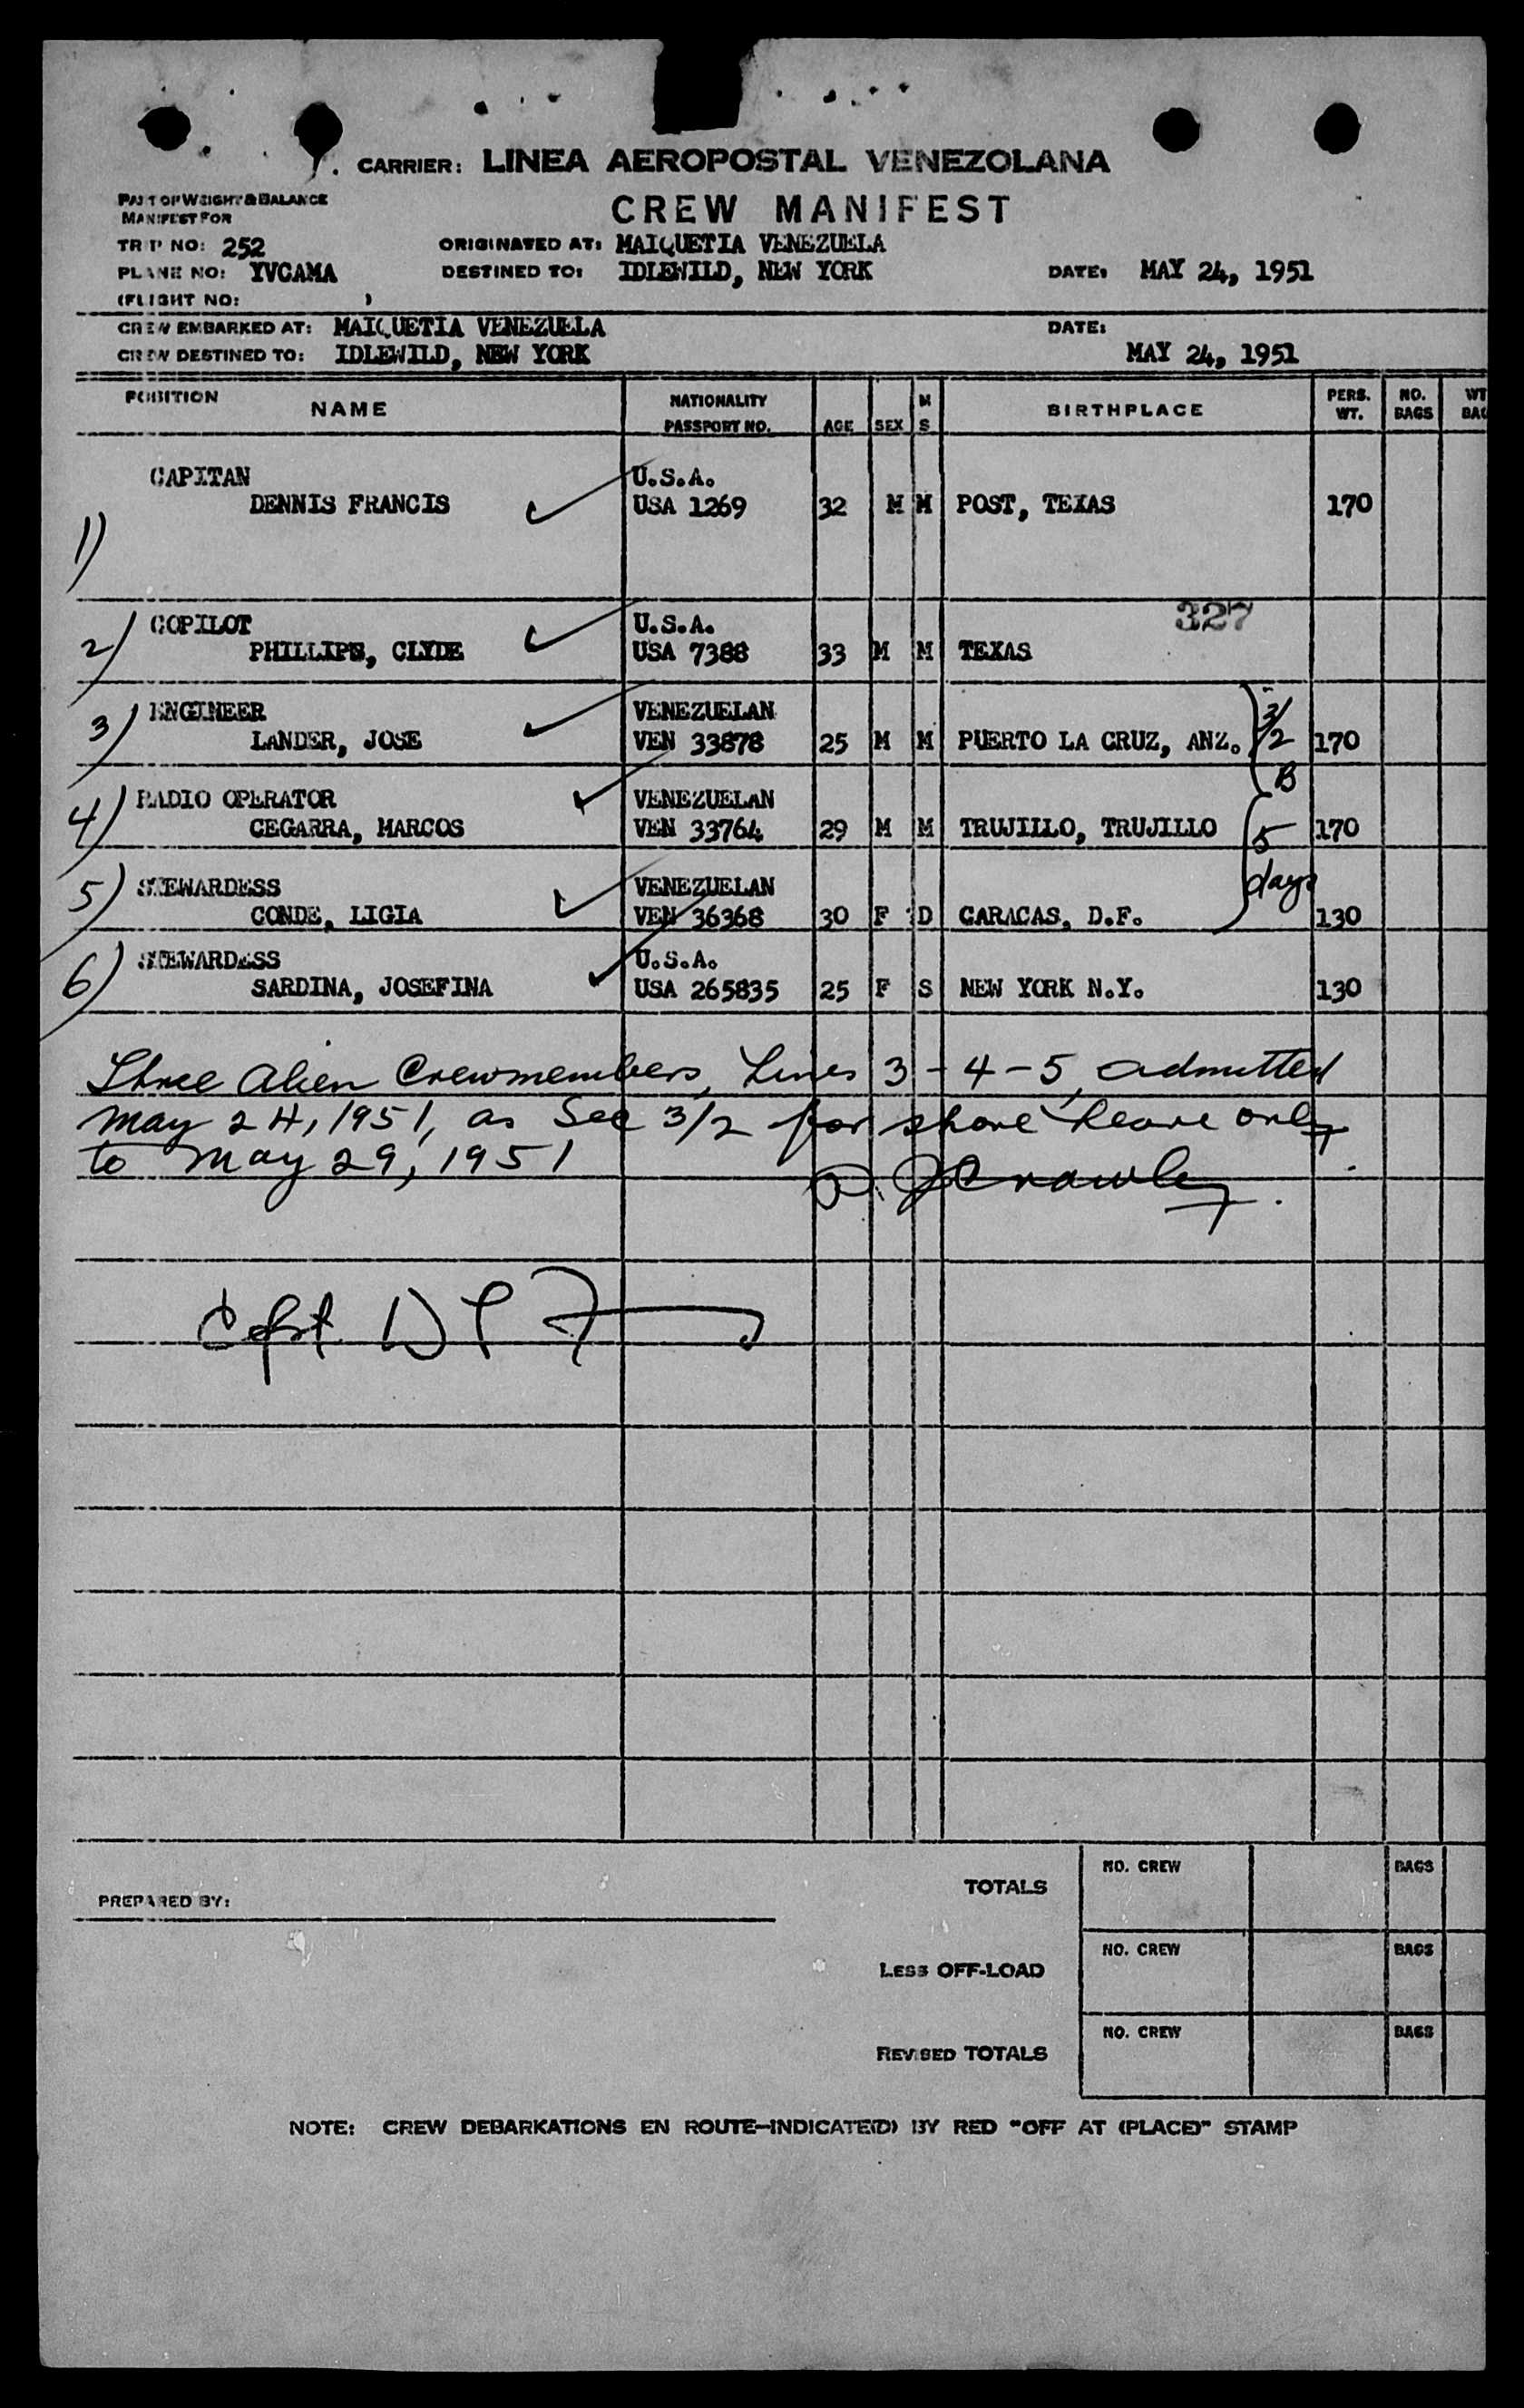 CARRIER: LINEA AEROPOSTAL VENEZOLANA
PART OF WEIGHT & BALANCE
MANIFEST FOR
CREW MANIFEST
TRIP NO: 252
ORIGINATED AT: MAIQUETIA VENEZUELA
PLANE NO: YVCAMA
DESTINED TO: IDLEWILD, NEW YORK
DATE: MAY 24, 1951
(FLIGHT NO: )
CREW EMBARKED AT: MAIQUETIA VENEZUELA
DATE:
CREW DESTINED TO: IDLEWILD, NEW YORK
MAY 24, 1951
POSITION NAME NATIONALITY PASSPORT NO. AGE SEX M S BIRTHPLACE PERS. WT. NO. BAGS WT BAG
CAPITAN U.S.A.
1) DENNIS FRANCIS USA 1269 32 M M POST, TEXAS 170
327
2) COPILOT U.S.A.
PHILLIPS, CLYDE USA 7388 33 M M TEXAS
3) ENGINEER VENEZUELAN
LANDER, JOSE VEN 33878 25 M M PUERTO LA CRUZ, ANZ. 3/2 170
B
4) RADIO OPERATOR VENEZUELAN
CEGARRA, MARCOS VEN 33764 29 M M TRUJILLO, TRUJILLO 5 170
days
5) STEWARDESS VENEZUELAN
CONDE, LIGIA VEN 36368 30 F D CARACAS, D.F. 130
6) STEWARDESS U.S.A.
SARDINA, JOSEFINA USA 265835 25 F S NEW YORK N.Y. 130
Three Alien Crewmembers, Lines 3-4-5, admitted
May 24, 1951, as Sec 3/2 for shore leave only
to May 29, 1951
Crawley
Capt D L F
PREPARED BY:
TOTALS NO. CREW BAGS
LESS OFF-LOAD NO. CREW BAGS
REVISED TOTALS NO. CREW BAGS
NOTE: CREW DEBARKATIONS EN ROUTE-INDICATE(D) BY RED "OFF AT (PLACE)" STAMP